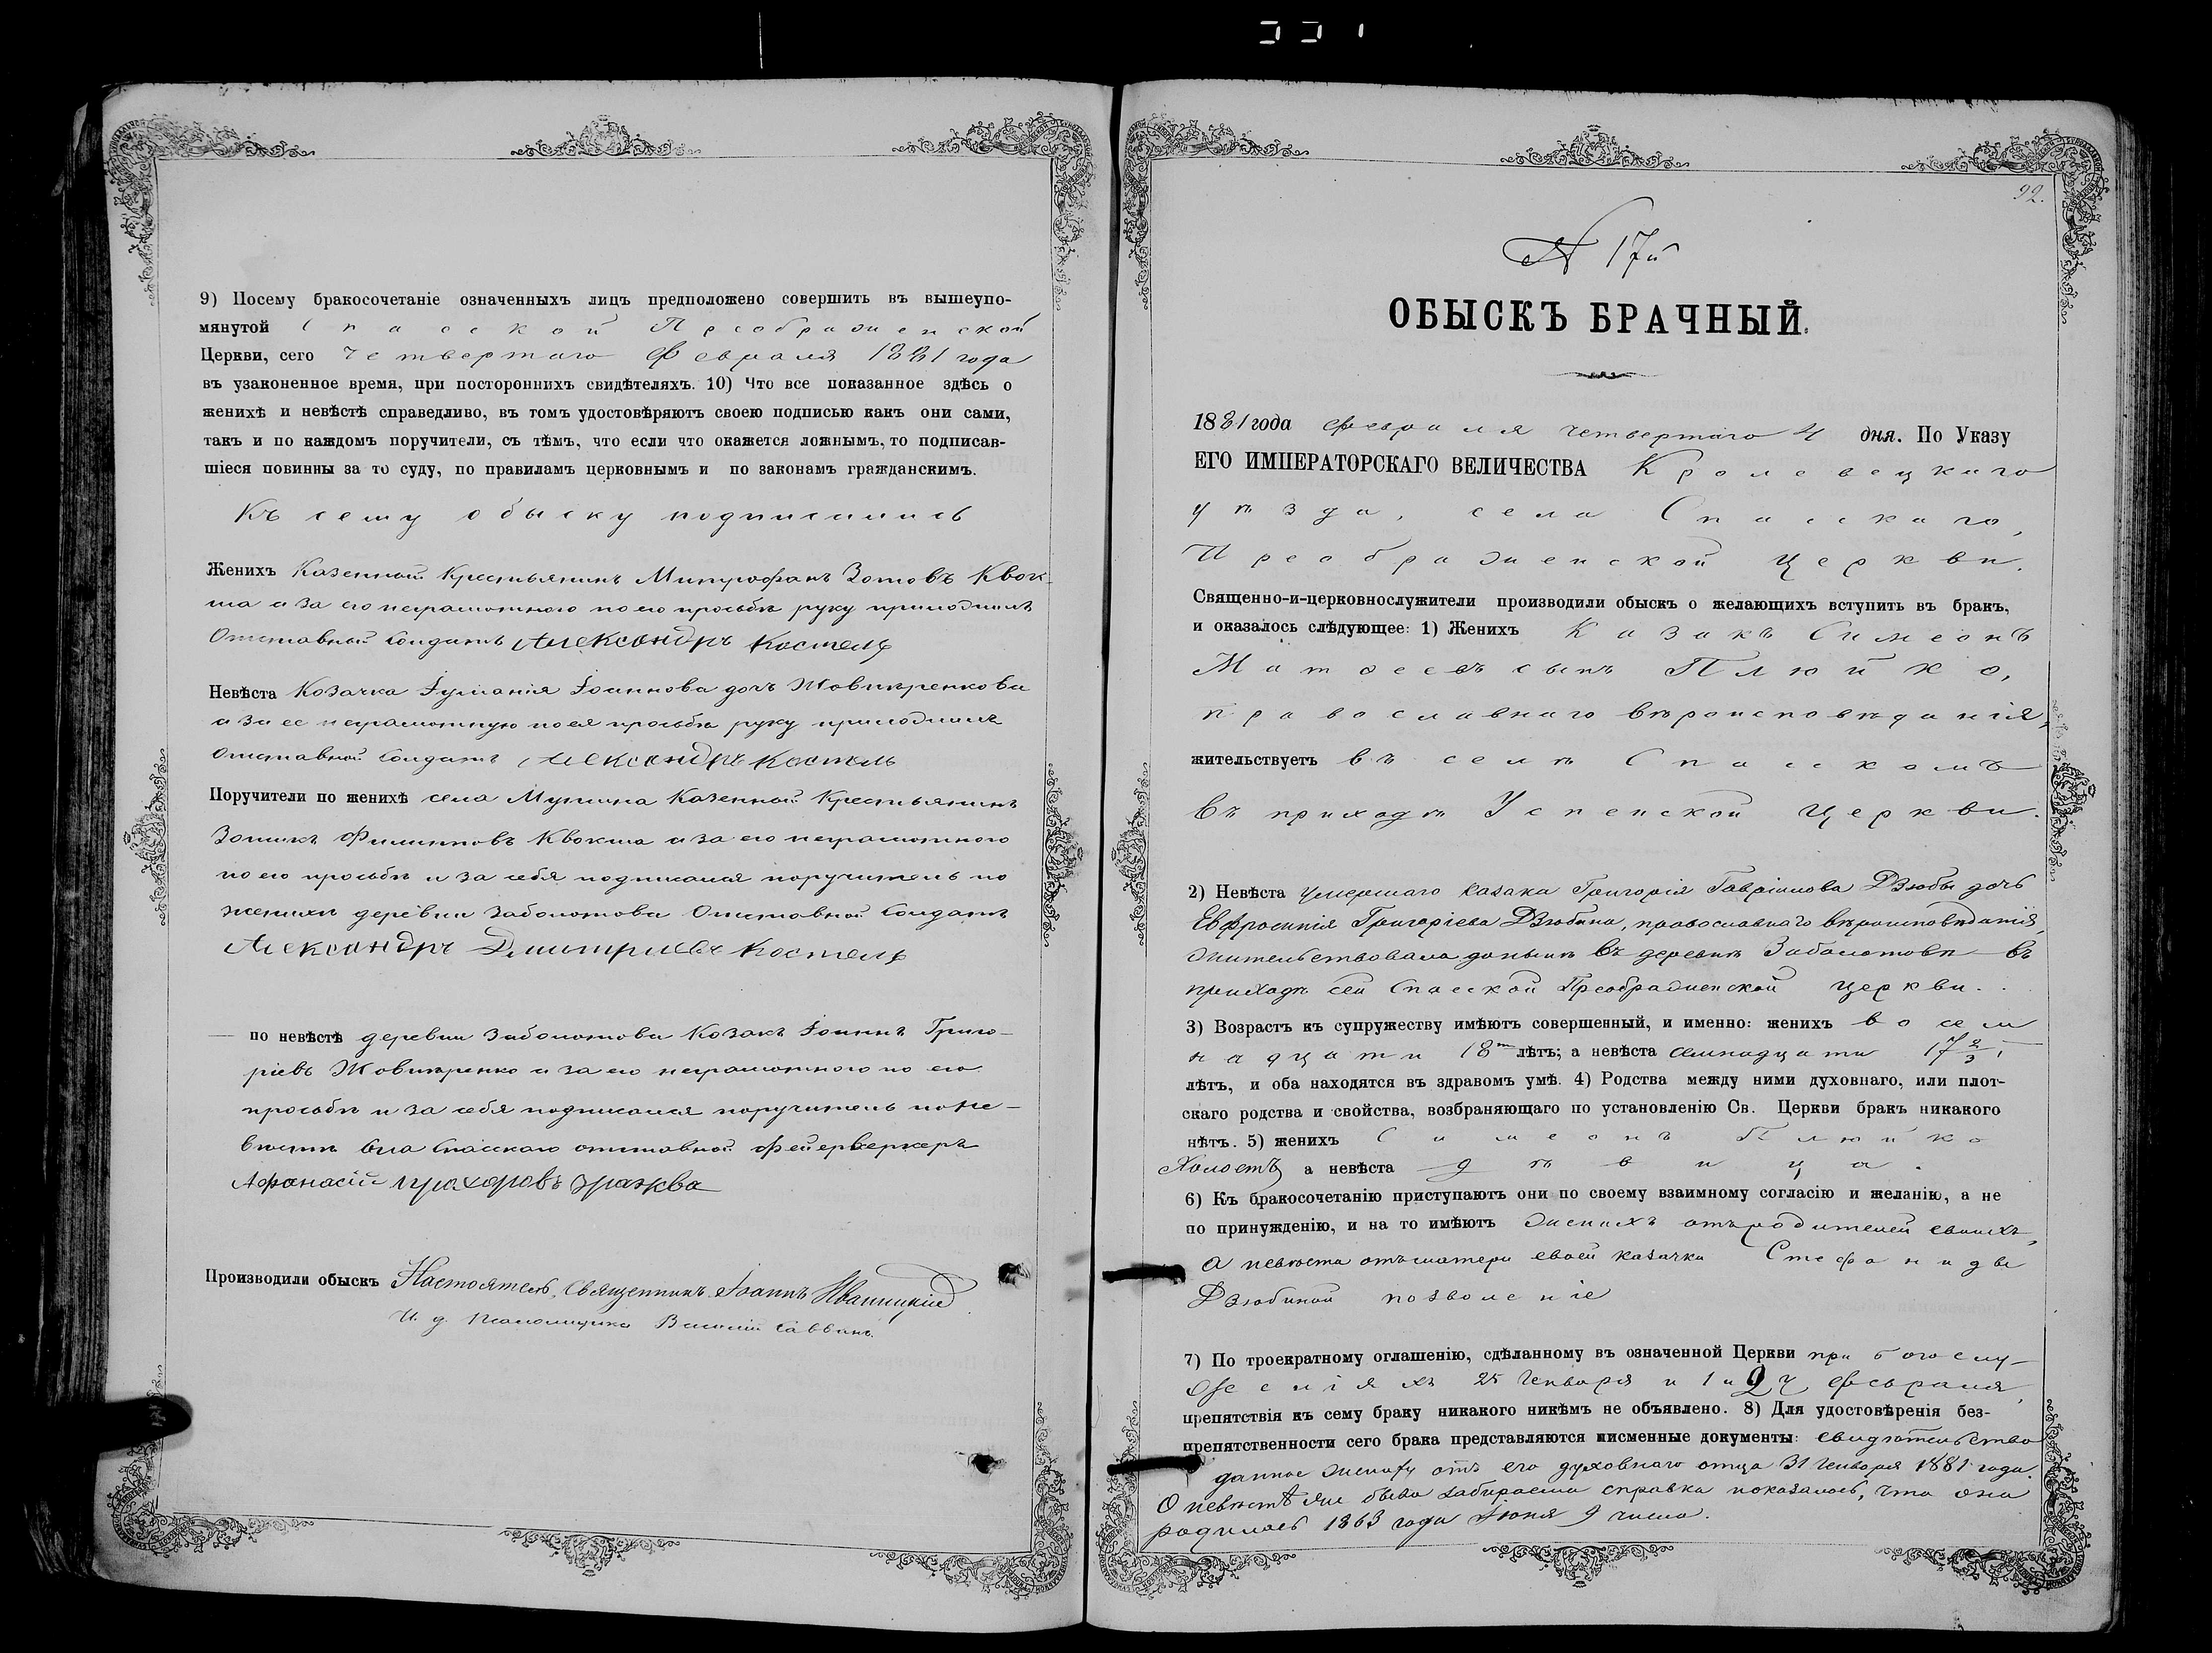 9) Посему бракосочетаніе означенныхъ лицъ предположено совершить въ вышеупо-
мянутой Спасской Преображенской
Церкви, сего четвертаго февраля 1881 года
въ узаконенное время, при постороннихъ свидѣтеляхъ. 10) Что все показанное здѣсь о
женихѣ и невѣстѣ справедливо, въ томъ удостовѣряютъ своею подписью какъ они сами,
такъ и по каждомъ поручители, съ тѣмъ, что если что окажется ложнымъ, то подписав-
шіеся повинны за то суду, по правиламъ церковнымъ и по законамъ гражданскимъ.
Къ сему обыску подписались
Женихъ Казенный Крестьянинъ Митрофанъ Зотовъ Квок-
ша а за его неграмотного по его прозьбѣ руку приложилъ
Отставный Солдатъ Александръ Костель
Невѣста Козачка Іуліанія Іоаннова дочь Жовтиренкова
а за ее неграмотную по ея прозьбѣ руку приложилъ
Отставной Солдатъ Александръ Костель
Поручители по женихѣ села Мутина Казенный Крестьянинъ
Зотикъ Филиповъ Квокша а за его неграмотного
по его прозьбѣ и за себя подписался поручитель по
женихѣ деревни Заболотова Отставной Солдатъ
Александръ Дмитріевъ Костель
— по невѣстѣ деревни Заболотова Козакъ Іоаннъ Григо-
ріевъ Жовтиренко а за его неграмотного по его
прозьбѣ и за себя подписался поручитель по не-
вѣстѣ села Спасскаго отставной Фейерверкеръ
Афонасій Прохоровъ
Производили обыскъ Настоятель, Священникъ Іоаннъ
И. д. Псаломщика Василій Саввинъ
92.
N 17й
ОБЫСКЪ БРАЧНЫЙ.
1881 года февраля четвертаго 4 дня. По Указу
ЕГО ИМПЕРАТОРСКАГО ВЕЛИЧЕСТВА Кролевецкаго
уѣзда, села Спасскаго,
Преображенской церкви.
Священно-и-церковнослужители производили обыскъ о желающихъ вступить въ бракъ,
и оказалось слѣдующее: 1) Женихъ Казакъ Симеонъ
Матоеевъ сынъ Плюйко,
православнаго вѣроисповѣданія,
жительствуетъ въ селѣ Спасскомъ
въ приходѣ Успенской церкви.
2) Невѣста умершаго казака Григорія Гавріилова Дзюбы дочь
Евфросинія Григоріева Дзюбина, православнаго вѣроисповѣданія,
жительствовала донынѣ въ деревнѣ Заболотовѣ въ
приходѣ сей Спасской Преображенской церкви.
3) Возрастъ къ супружеству имѣютъ совершенный, и именно: женихъ восем
надцати 18 лѣтъ; а невѣста семнадцати 17 2/3
лѣтъ, и оба находятся въ здравомъ умѣ. 4) Родства между ними духовнаго, или плот-
скаго родства и свойства, возбраняющаго по установленію Св. Церкви бракъ никакого
нѣтъ. 5) женихъ Симеонъ Плюйко
Холостъ а невѣста дѣвица.
6) Къ бракосочетанію приступаютъ они по своему взаимному согласію и желанію, а не
по принужденію, и на то имѣютъ женихъ отъ родителей своихъ,
а невѣста отъ матери своей казачки Стефаниды
Дзюбиной позволеніе
7) По троекратному оглашенію, сдѣланному въ означенной Церкви при богослу-
женіяхъ 25 Генваря и 1 и 2 ч февраля,
препятствія къ сему браку никакого никѣмъ не объявлено. 8) Для удостовѣренія без-
препятственности сего брака представляются письменные документы: свидѣтельство
данное жениху отъ его духовнаго отца 31 Генваря 1881 года.
О невѣстѣ же была забираема справка показалось, что она
родилась 1863 года Іюня 9 числа.